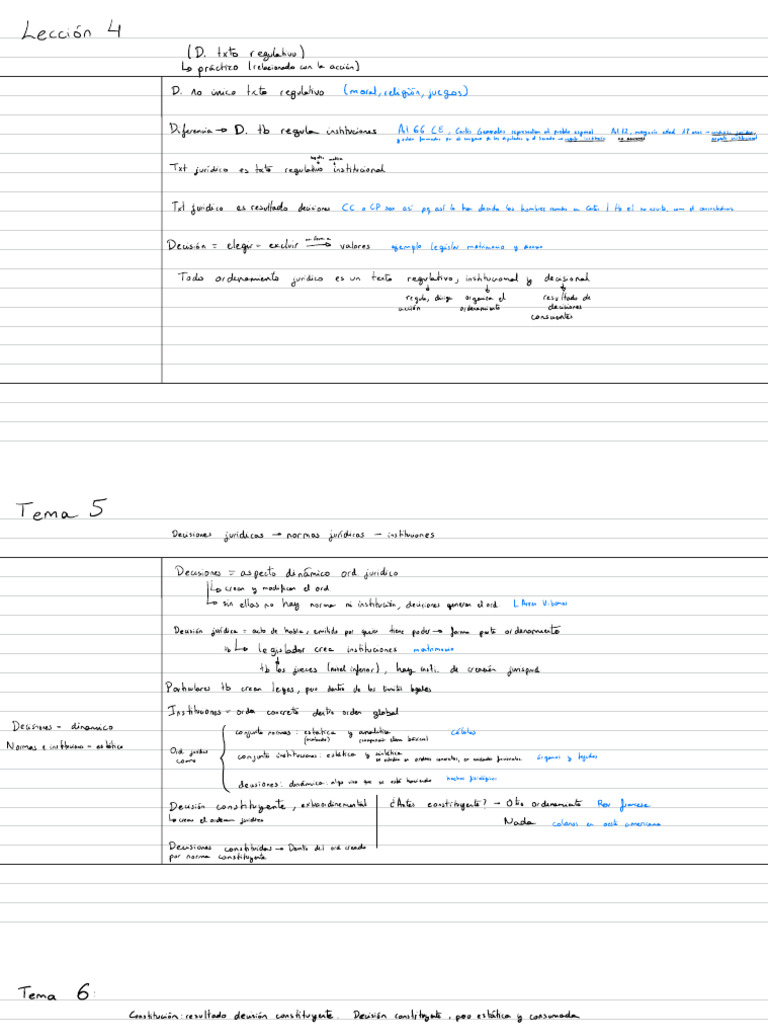 Lección 4
(D. txto regulativo)
Lo práctico (relacionado con la acción)
D. no único txto regulativo (moral, religión, juegos)
Diferencia → D. tb regula instituciones Art 66 CE, Cortes Generales representan al pueblo español Art 12, mayoría edad 18 años
y están formadas por el congreso de los diputados y el senado
Txt jurídico es txto regulativo institucional
Txt jurídico es resultado decisiones CC o CP son así pq así lo han decidido los hombres
Decisión = elegir - excluir → valores ejemplo legislar matrimonio y
Todo ordenamiento jurídico es un texto regulativo, institucional y decisional
regula, dirige acción
organiza el ordenamiento
resultado de decisiones conscientes
Tema 5
Decisiones jurídicas → normas jurídicas - instituciones
Decisiones = aspecto dinámico ord jurídico
↳ crean y modifican el ord
↳ sin ellas no hay norma ni institución, decisiones generan el ord.
Decisión jurídica = acto de habla, emitido por quien tiene poder → forma parte ordenamiento
tb ↳ legislador crea instituciones matrimonio
tb los jueces (nivel inferior), hay insti. de creación jurisprd
Particulares tb crean leyes, pero dentro de los límites legales
Instituciones = orden concreto dentro orden global
Decisiones - dinámico
Normas e instituciones - estático
Ord jurídico como
conjunto normas: estática y analítica células
conjunto instituciones: estática y sintética órganos y tejidos
decisiones: dinámica: algo vivo que se está haciendo hechos fisiológicos
Decisión constituyente, extraordinamental
↳ crea el ordenam jurídico
¿Antes constituyente? → Otro ordenamiento Rev francesa
Nada colonos en americana
Decisiones constituidas → Dentro del ord creado
por norma constituyente
Tema 6:
Constitución: resultado decisión constituyente. Decisión constituyente, pero estática y consumada